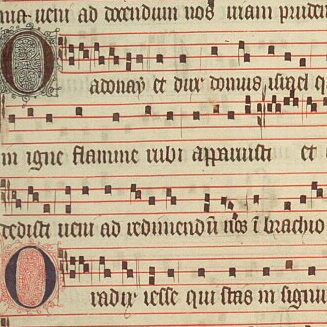 nia veni ad docendum nos viam pruden
O adonay et dux domus israel q
in igne flamme rubi apparuisti et
dedisti veni ad redimendū nos ī brachio
O radix iesse qui stas in signū